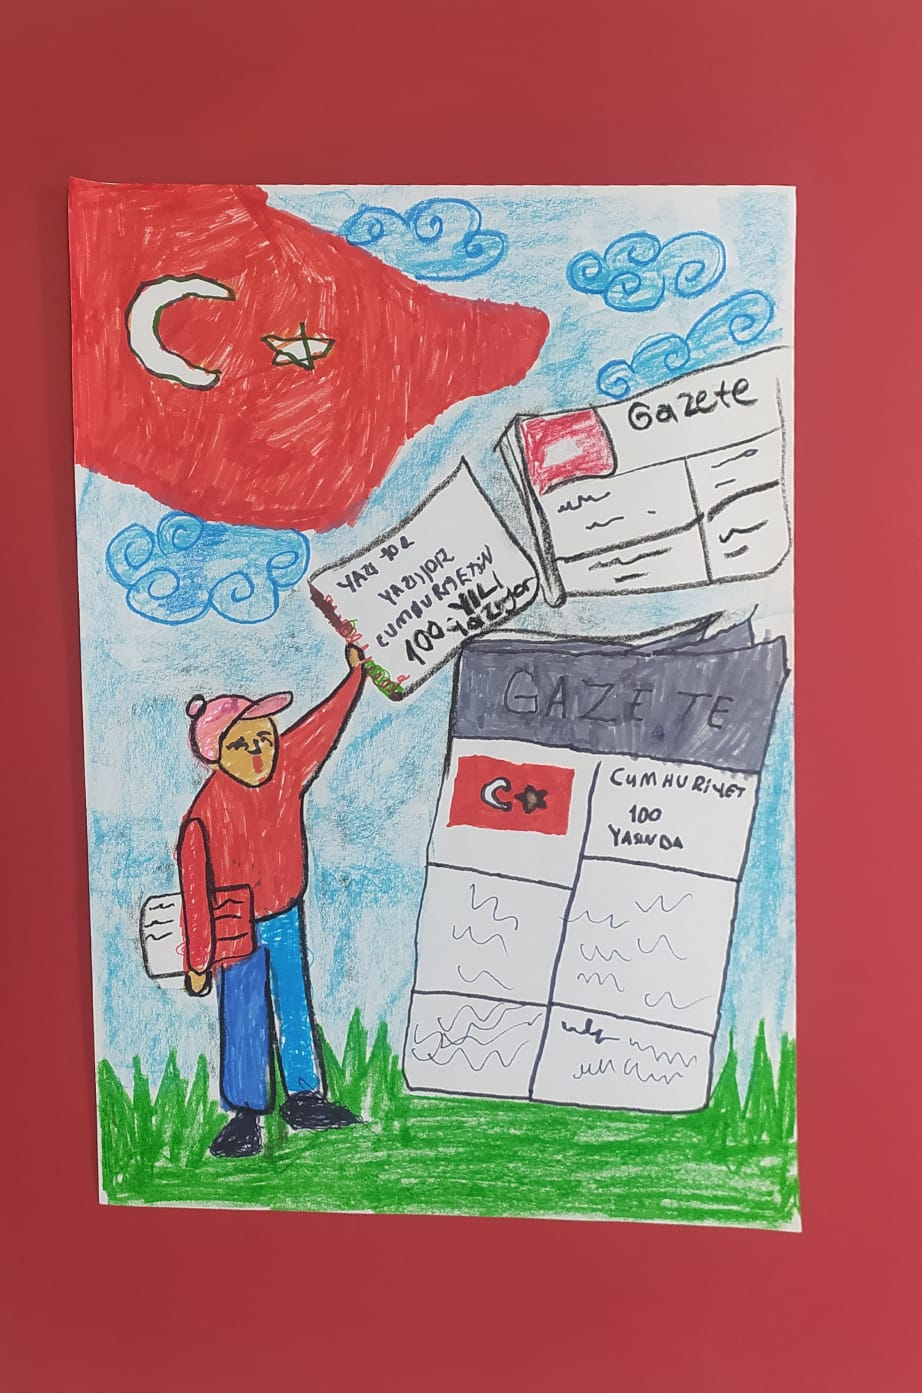 Gazete
YAZI YOR
YAZIYOR
CUMHURİYETİN
100. YILI
Yazıyor
GAZETE
CUMHURİYET
100
YAŞINDA